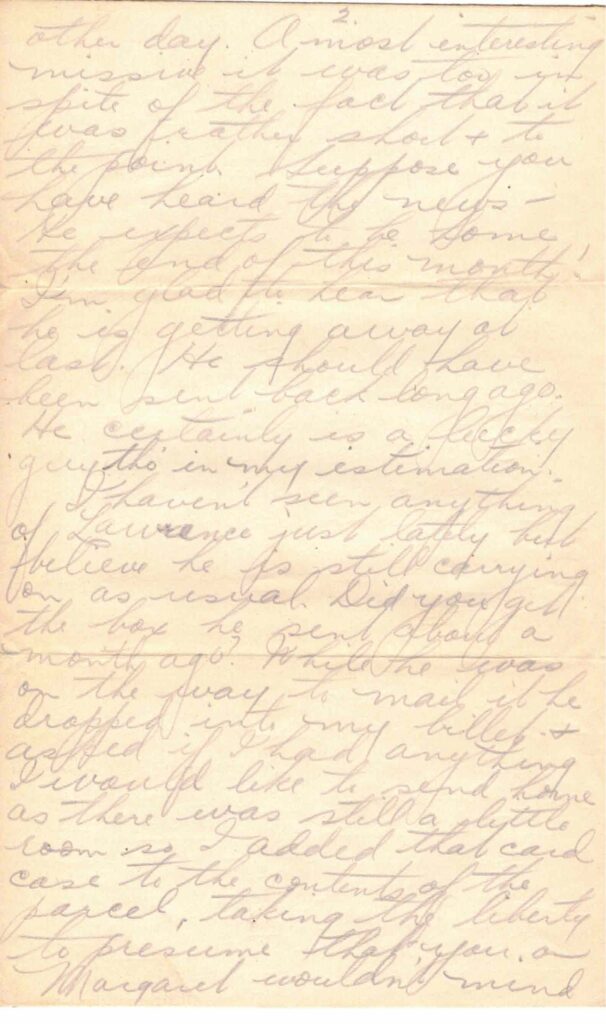 2.
other day. A most interesting
missive it was too in
spite of the fact that it
was rather short & to
the point. Suppose you
have heard the news –
He expects to be home
the end of this month!
I'm glad to hear that
he is getting away at
last. He should have
been sent back long ago.
He certainly is a lucky
guy tho' in my estimation.
I haven't seen anything
of Lawrence just lately but
believe he is still carrying
on as usual. Did you get
the box he sent about a
month ago? While he was
on the way to mail it he
dropped into my billet &
asked if I had anything
I would like to send home
as there was still a little
room so I added that card
case to the contents of the
parcel, taking the liberty
to presume that you or
Margaret wouldn't mind